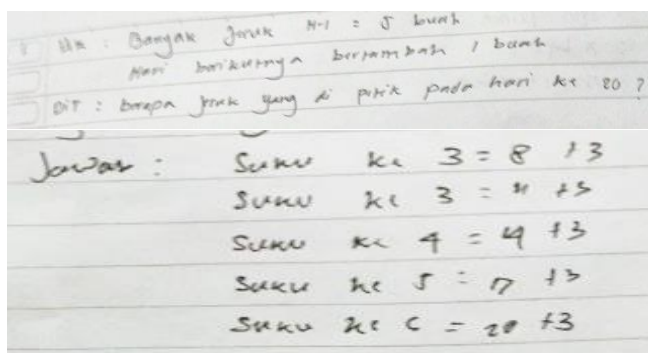 Dik : Banyak Jeruk H-1 = 5 buah
Hari berikutnya bertambah 1 buah
DiT : berapa Jeruk yang di petik pada hari ke 20 ?
Jawab : Suku ke 3 = 8 +3
Suku ke 3 = 11 +3
Suku ke 4 = 14 +3
Suku ke 5 = 17 +3
Suku ke 6 = 20 +3